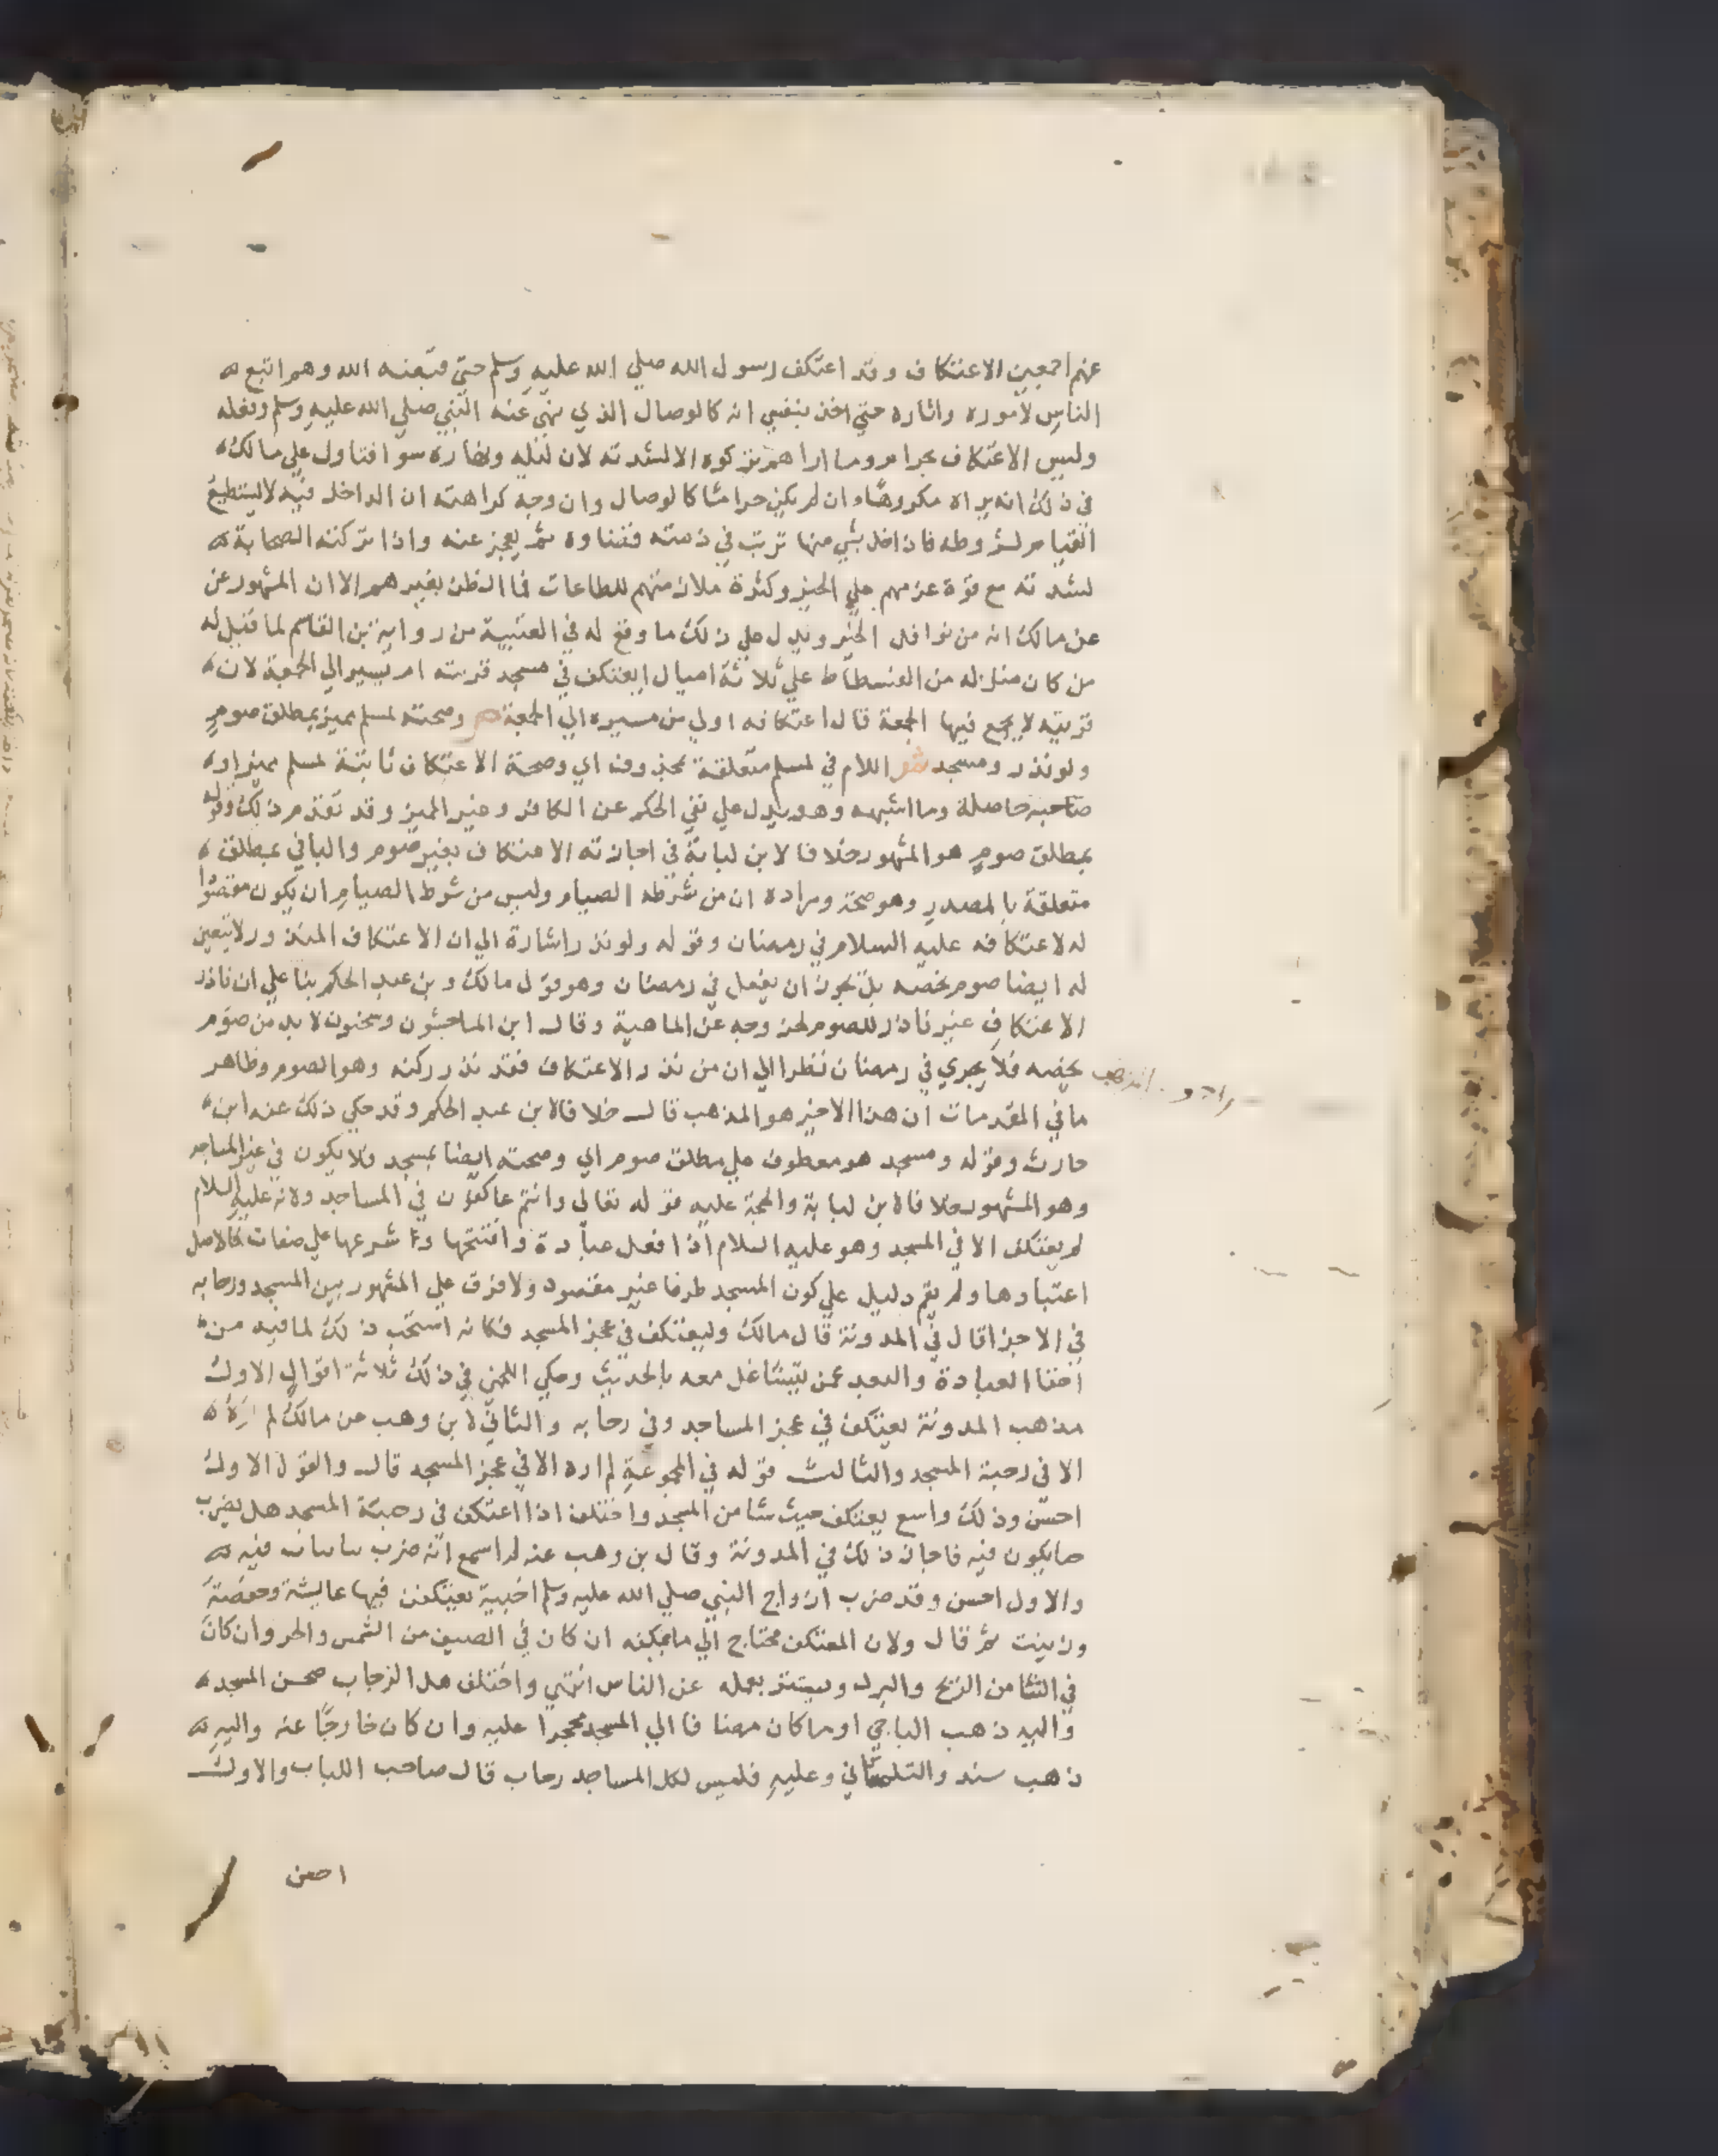 عنهم اجمعين الاعتكاف وقد اعتكف رسول الله صلي الله عليه وسلم حتي قبضه الله وهم اتبع
الناس لاموره واثاره حتي اخذ بنفسي انه كالوصال الذي نهي عنه النبي صلي الله عليه وسلم وفعله
وليس الاعتكاف بحرام وما اراهم تركوه الا لشدته لان ليله ونهاره سوا فتاول علي مالك
في ذلك انه يراه مكروها وان لم يكن حراما كالوصال وان وجه كراهته ان الداخل فيه لا يستطيع
القيام لشروطه فان اخل بشي منها ترتب في ذمته قضاوه ثم يعجز عنه واذا تركته الصحابة
لشدته مع قوة عزمهم علي الخير وكثرة ملازمتهم للطاعات فما الظن بغيرهم الا ان المشهور عن
عن مالك انه من نوافل الخير ويدل علي ذلك ما وقع له في العتبية من رواية بن القاسم لما قيل له
من كان منزله من الفسطاط علي ثلاثة اميال ايعتكف في مسجد قريته ام يسير الي الجمعة لان
قريته لا يجمع فيها الجمعة قال اعتكافه اولي من مسيره الي الجمعة ص وصحته لمسلم مميز بمطلق صوم
ولو نذر ومسجد ش اللام في لمسلم متعلقة بمحذوف اي وصحة الاعتكاف ثابتة لمسلم مميز اوه
صاحبه حاصلة وما اشبهه وهو يدل علي نفي الحكم عن الكافر وغير المميز وقد تقدم ذلك وقوله
بمطلق صوم هو المشهور خلافا لابن لبابة في اجازته الاعتكاف بغير صوم والبا في بمطلق
متعلقة بالمصدر وهو صحة ومراده ان من شرطه الصيام وليس من شرط الصيام ان يكون مقصورا
له لاعتكافه عليه السلام في رمضان وقوله ولو نذر اشارة الي ان الاعتكاف المنذور لا يتعين
له ايضا صوم يخصه بل يجوز ان يفعل في رمضان وهو قول مالك وبن عبد الحكم بنا علي ان ناذر
الاعتكاف غير ناذر للصوم لخروجه عن الماهية وقال ابن الماجشون وسحنون لا بد من صوم
يخصه فلا يجري في رمضان نظرا الي ان من نذر الاعتكاف فقد نذر ركنه وهو الصوم وظاهر
ما في المقدمات ان هذا الاخير هو المذهب قال خلافا لابن عبد الحكم وقد حكي ذلك عنه ابن
حارث وقوله ومسجد هو معطوف علي مطلق صوم اي وصحته ايضا بمسجد فلا يكون في غير المساجد
وهو المشهور خلافا لابن لبابة والحجة عليه قوله تعالي وانتم عاكفون في المساجد ولانه عليه السلام
لم يعتكف الا في المسجد وهو عليه السلام اذا فعل عبادة وافتتحها وشرعها علي صفات فالاصل
اعتبارها ولم يقم دليل علي كون المسجد طرفا غير مقصود ولا فرق علي المشهور بين المسجد ورحابه
في الاجزا قال في المدونة قال مالك وليعتكف في عجز المسجد فكانه استحب ذلك لما فيه من
اخفا العبادة والبعد عمن يتشاغل معه بالحديث وحكي اللخمي في ذلك ثلاثة اقوال الاول
مذهب المدونة يعتكف في عجز المساجد وفي رحابه والثاني لابن وهب عن مالك لم اره
الا في رحبة المسجد والثالث قوله في المجموعة لم اره الا في عجز المسجد قال والقول الاول
احسن وذلك واسع يعتكف حيث شا من المسجد واختلف اذا اعتكف في رحبة المسجد هل يضرب
ما يكون فيه فاجاز ذلك في المدونة وقال بن وهب عنه لم اسمع انه ضرب فيه
والاول احسن وقد ضرب ازواج النبي صلي الله عليه وسلم اخبية يعتكفن فيها عايشة وحفصة
وزينت ثم قال ولان المعتكف محتاج الي ما يكنه ان كان في الصيف من الشمس والحر وان كان
في الشتا من الريح والبرد ويستتر بعمله عن الناس انتهي واختلف هل الرحاب صحن المسجد
واليه ذهب الباجي او ما كان مضافا الي المسجد محجرا عليه وان كان خارجا عنه واليه
ذهب سند والتلمساني وعليه فليس لكل المساجد رحاب قال صاحب اللباب والاول
احسن